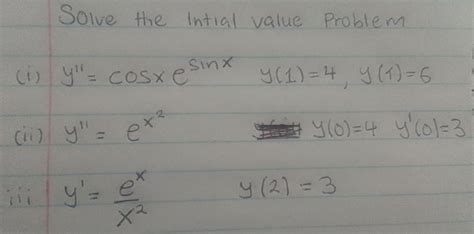 Solve the Intial value Problem
(i) y'' = cosx e^sinx y(1)=4, y(1)=6
(ii) y'' = e^x² y(0)=4 y'(0)=3
iii y' = e^x/x² y(2) = 3